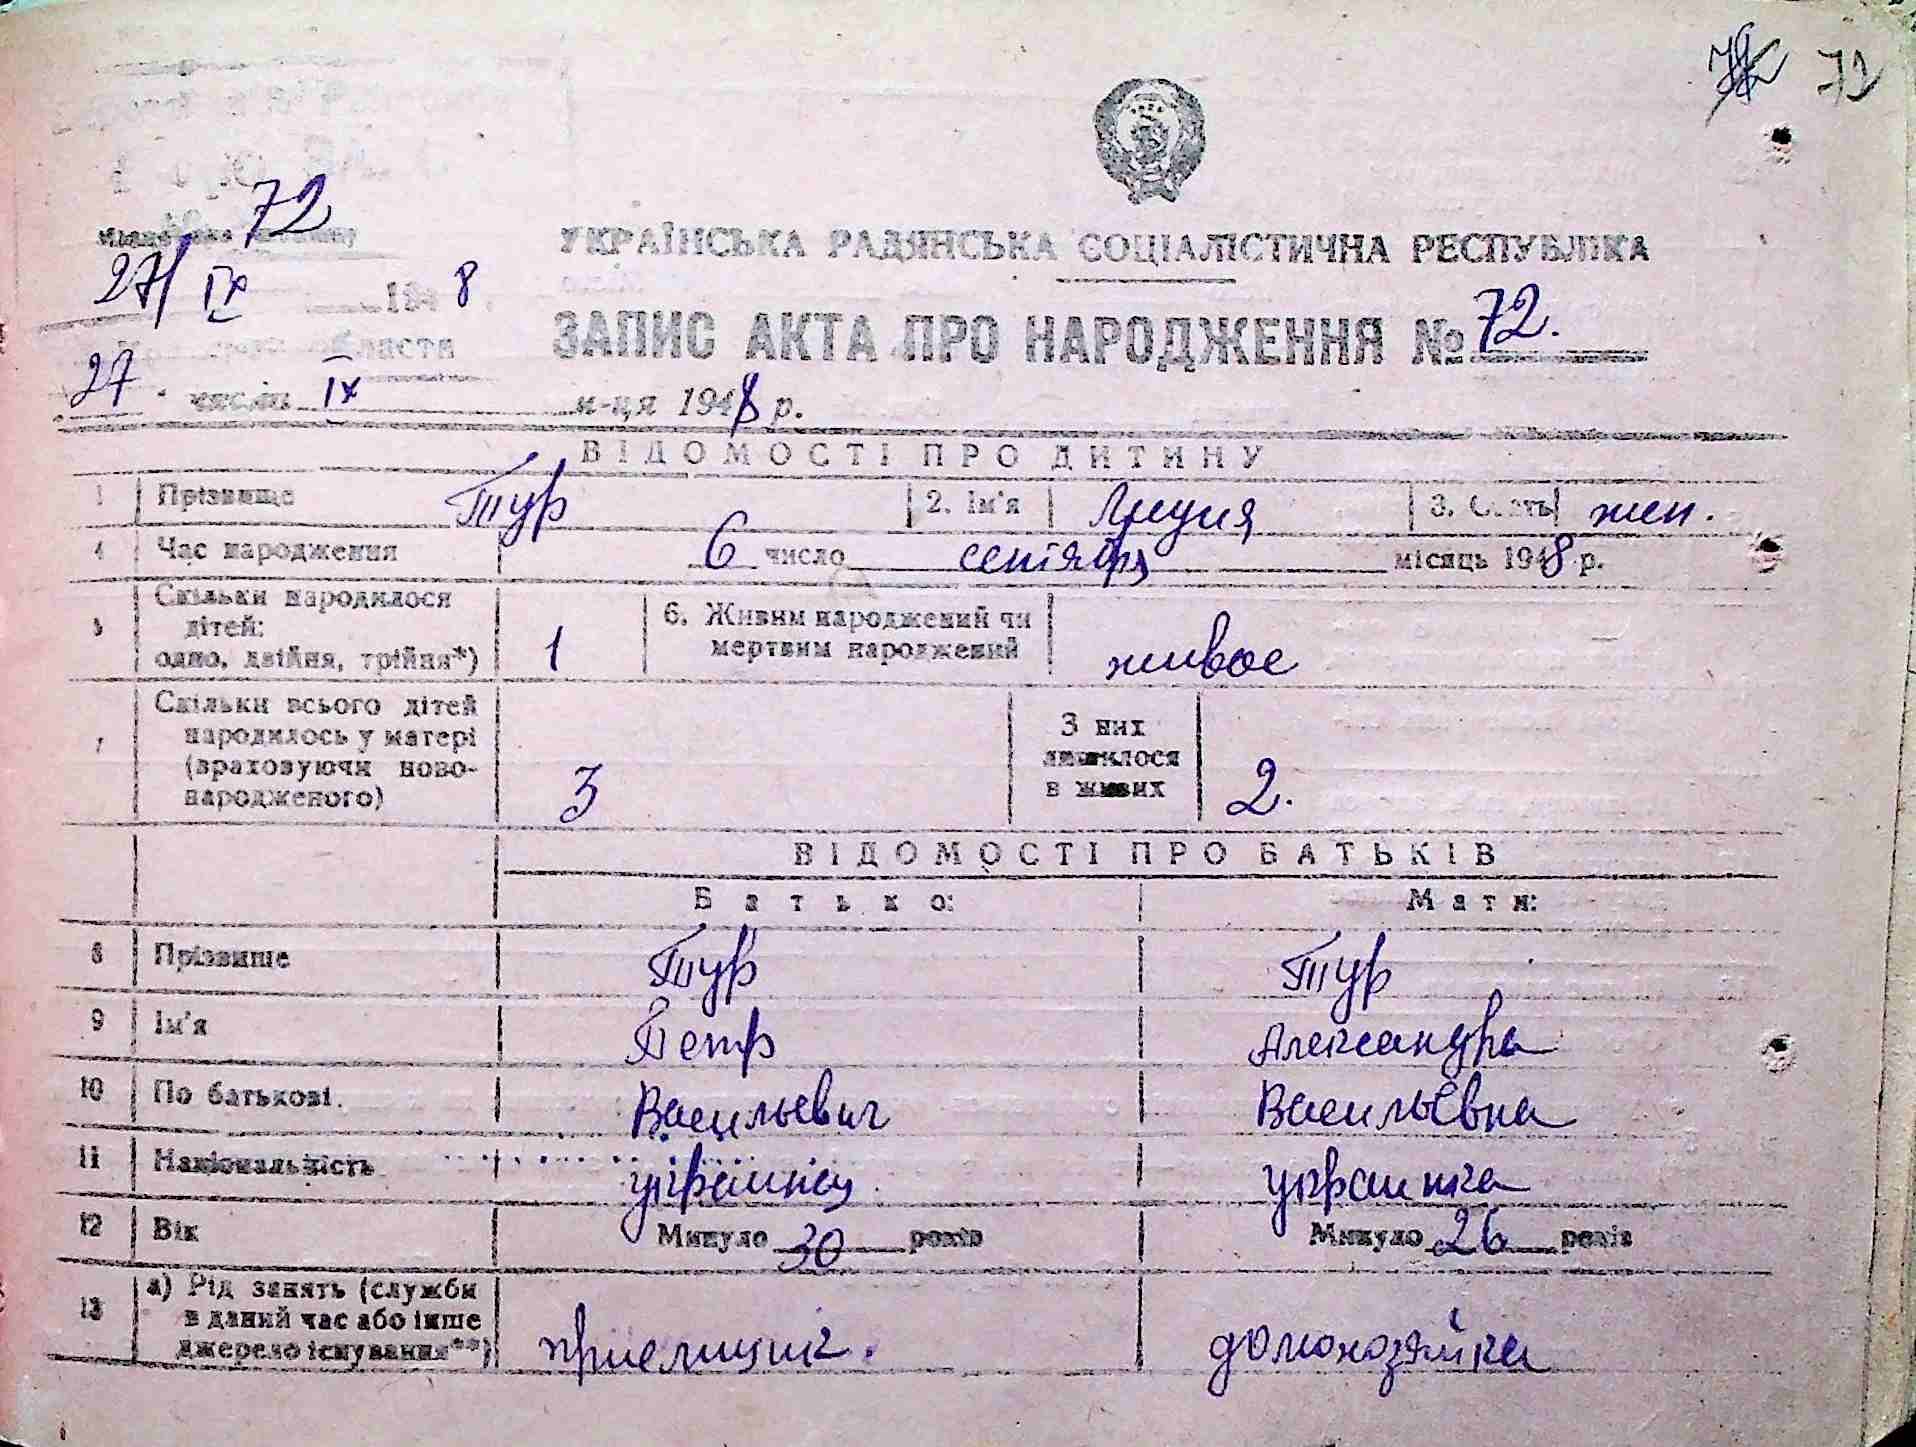 72
72
УКРАЇНСЬКА РАДЯНСЬКА СОЦІАЛІСТИЧНА РЕСПУБЛІКА
27/ IX 194 8
ЗАПИС АКТА ПРО НАРОДЖЕННЯ № 72.
27 числа IX м-ця 1948 р.
ВІДОМОСТІ ПРО ДИТИНУ
1 Прізвище Тур 2. Ім'я 3. Стать жен.
4 Час народження 6 число сентября місяць 1948 р.
5 Скільки народилося
дітей:
одно, двійня, трійня*) 1 6. Живим народжений чи
мертвим народжений живое
7 Скільки всього дітей
народилось у матері
(враховуючи ново-
народженого) 3 З них
лишилося
в живих 2.
ВІДОМОСТІ ПРО БАТЬКІВ
Батько: Мати:
8 Прізвище Тур Тур
9 Ім'я Петр Александра
10 По батькові. Васильевич Васильевна
11 Національність украинец украинка
12 Вік Минуло 30 років Минуло 26 років
13 а) Рід занять (служби
в даний час або інше
джерело існування**) приемщик. домохозяйка